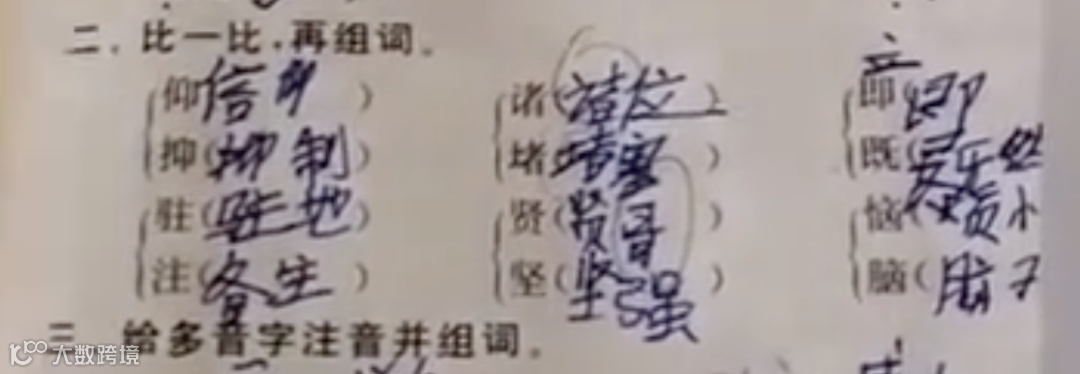 二、比一比,再组词。
仰(信仰) 诸(诸位) 即(立即)
抑(抑制) 堵(堵塞) 既(
驻(驻地) 贤(贤哥) 恼(
注(备生) 坚(坚强) 脑(脑子
三、给多音字注音并组词。
大数跨境